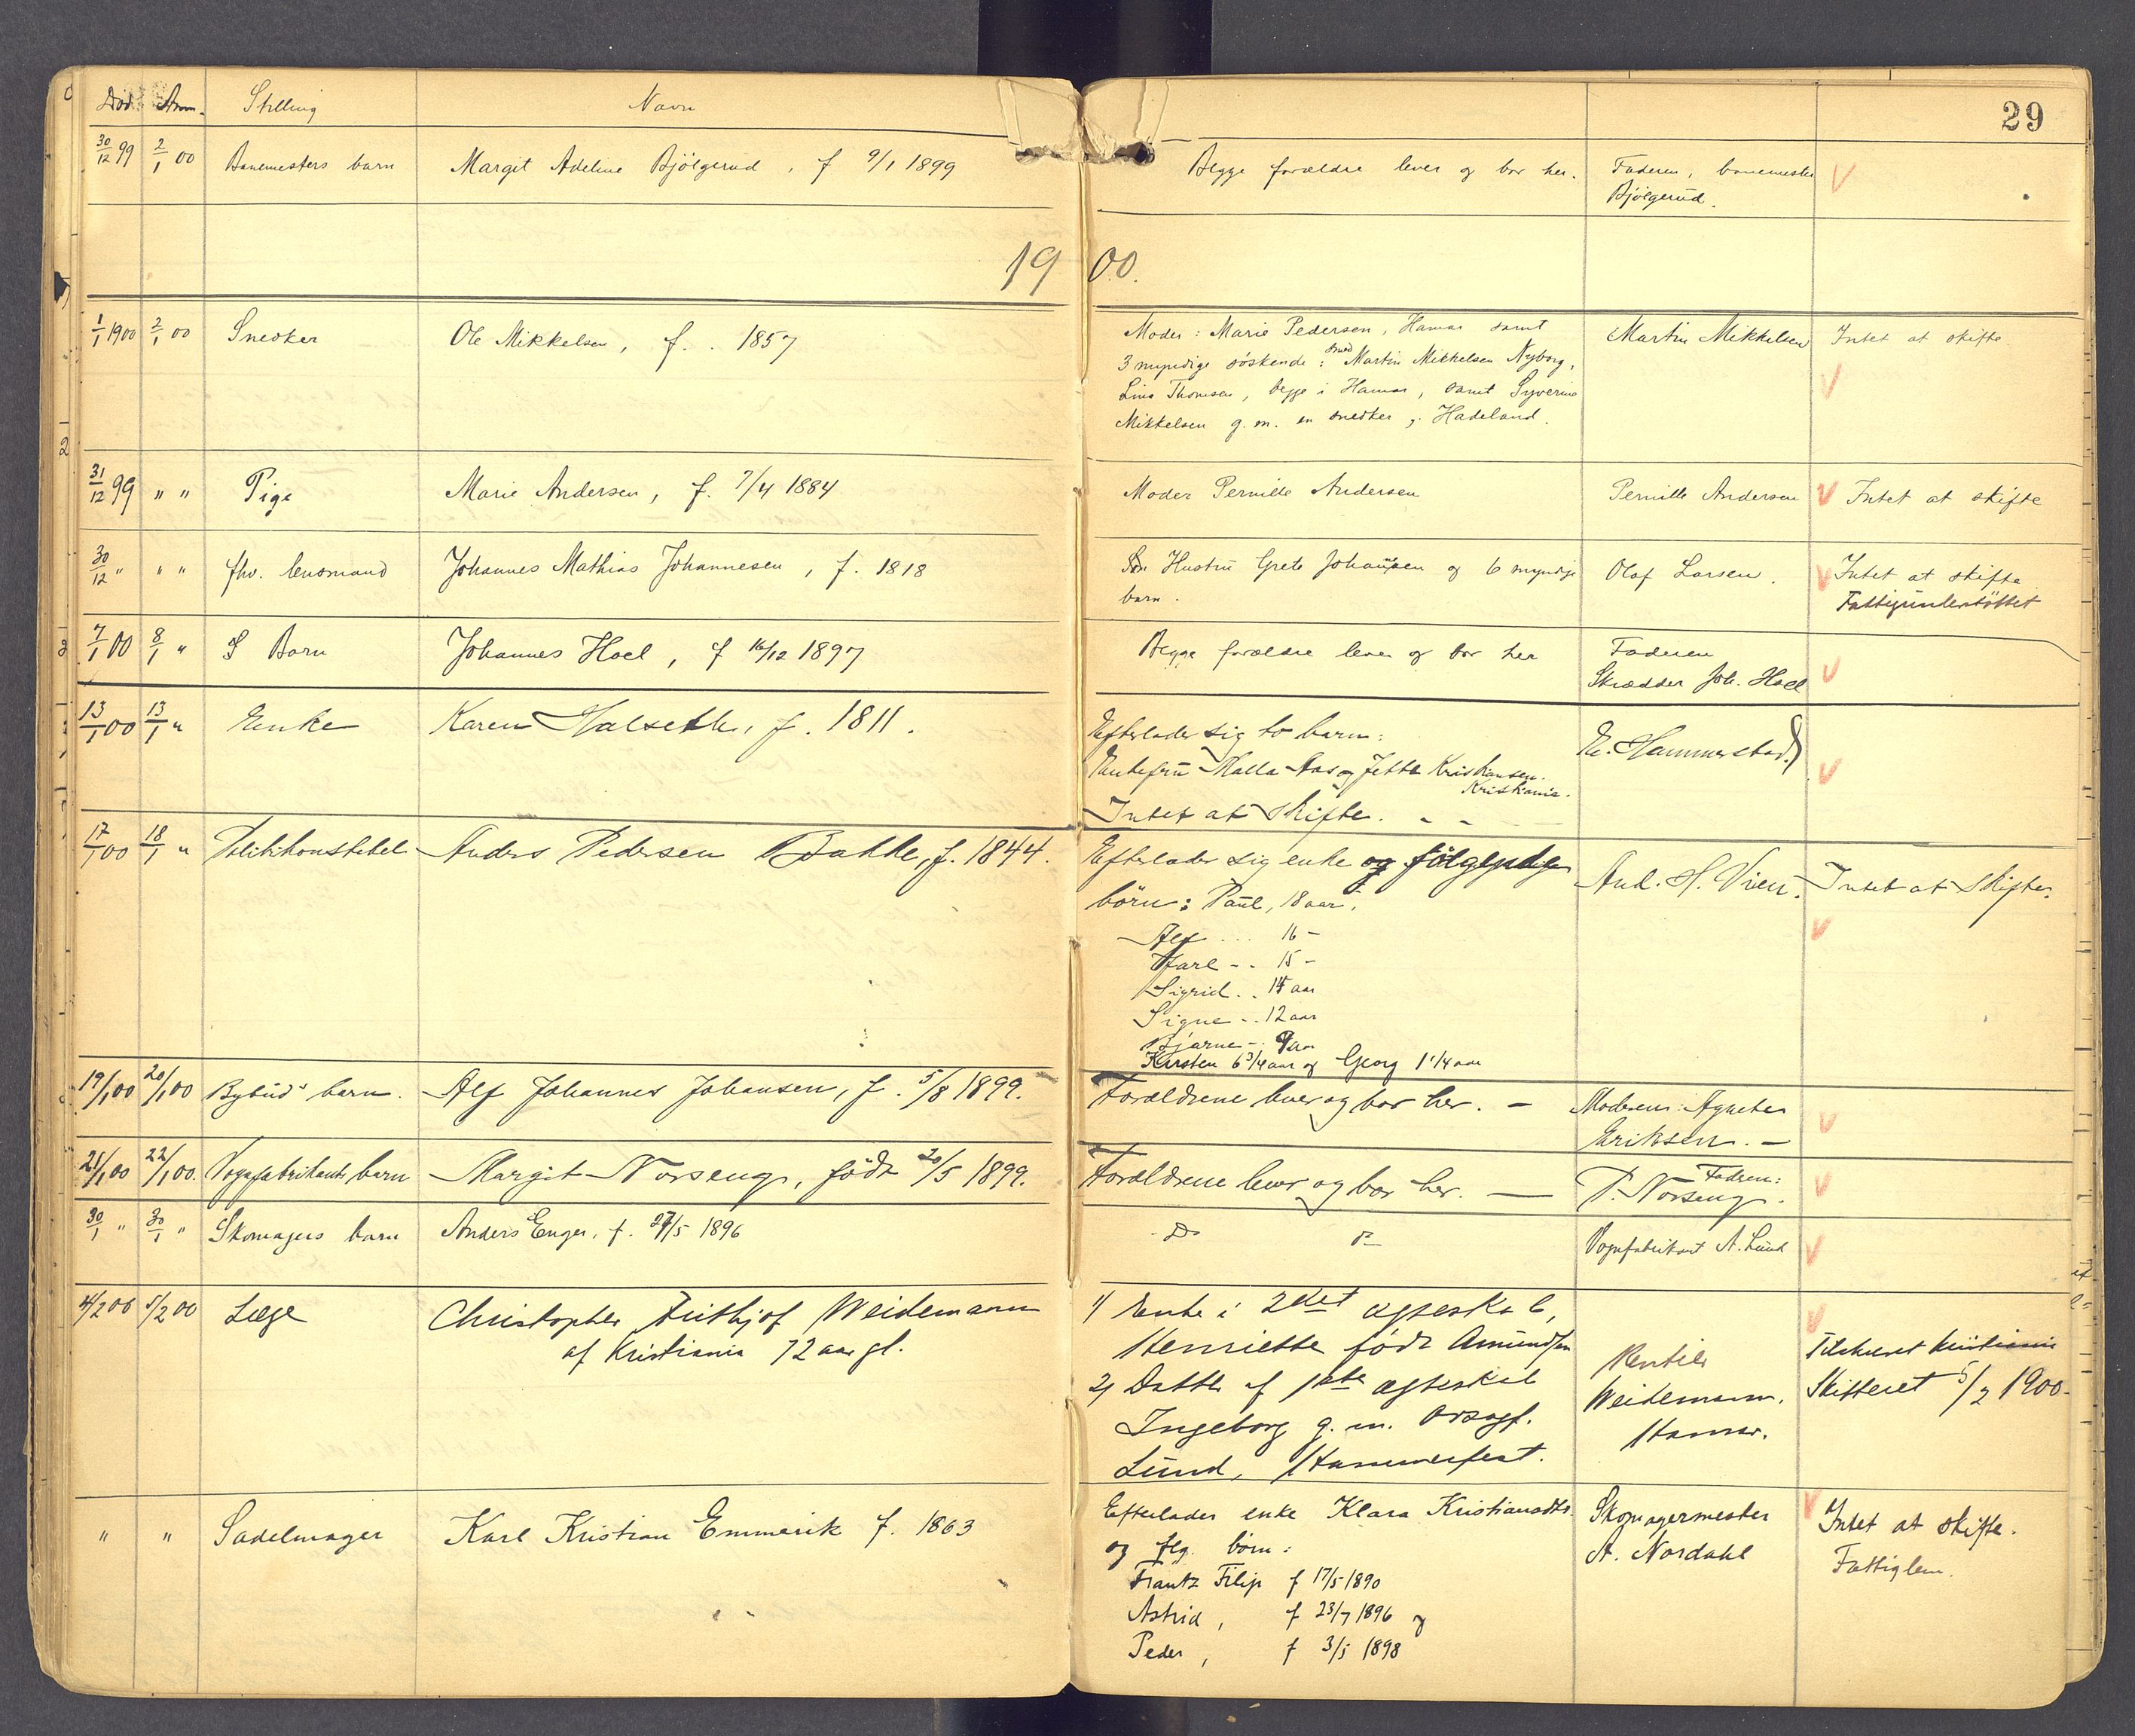 Död Anm. Stilling Navn
29
30/12 99 2/1 00 Banemesters barn Margit Adeline Bjölgerud, f 9/1 1899 Begge forældre lever og bor her. Faderen, banemester
Bjölgerud.
1900.
1/1 1900 2/1 00 Snedker Ole Mikkelsen, f. 1857 Moder: Marie Pedersen, Hamar samt Martin Mikkelsen Intet at skifte
3 myndige söskende: smed Martin Mikkelsen Nyborg,
Lina Thomsen, begge i Hamar, samt Syverine
Mikkelsen g. m. en snedker, Hadeland.
31/12 99 " " Pige Marie Andersen, f. 7/4 1884 Moder Pernille Andersen Pernille Andersen Intet at skifte
30/12 " " " fhv. lensmand Johannes Mathias Johannesen, f. 1818 Hustru Grete Johansen og 6 myndige Olaf Larsen. Intet at skifte
barn. Fattigunderstöttet
7/1 00 8/1 " Barn Johannes Hoel, f 16/12 1897 Begge forældre lever og bor her Faderen
Skrædder Joh. Hoel
13/1 00 13/1 " Enke Karen Halseth, f. 1811. Efterlader sig to barn: E. Hammerstad
Enkefru Malla Aas og Jette Kristiansen.
Kristiania.
Intet at skifte. - -
17/1 00 18/1 " Politikonstabel Anders Pedersen Bakke, f. 1844. Efterlader sig enke og fölgende And. H. Vien. Intet at skifte.
börn: Paul, 18 aar,
Alf .... 16 -
Jarl - . 15 -
Sigrid . . 14 aar
Signe - . 12 aar
Bjarne - . 9 aar
Kirsten 6 3/4 aar og Georg 1 1/4 aar
19/1 00 20/1 00 Bybuds barn. Alf Johannes Johansen, f. 5/8 1899. Forældrene lever og bor her. - Moderen: Agnethe
Eriksen. -
21/1 00 22/1 00. Vognfabrikants barn Margit Norseng, födt 20/5 1899. Forældrene lever og bor her. - Faderen:
P. Norseng.
30/1 " 30/1 " Skomagers barn Anders Enger, f. 27/5 1896 Do do Vognfabrikant A. Lund
4/2 00 5/2 00 Læge Christopher Frithjof Weidemann 1/ Enke i 2det ægteskab,
af Kristiania 72 aar gl. Henriette födt Amundsen Rentier Tilskrevet Kristiania
2/ Datter af 1ste ægteskab Weidemann, Skifteret 5/2 1900.
Ingeborg g. m. Overs. Hamar.
Lund, Hammerfest.
" " Sadelmager Karl Kristian Emmerik f. 1863 Efterlader enke Klara Kristiansdtr. Skomagermester Intet at skifte.
og flg. börn: A. Nordahl Fattiglem.
Frantz Filip f 17/5 1890
Astrid, f 23/7 1896 og
Peder, f 3/5 1898